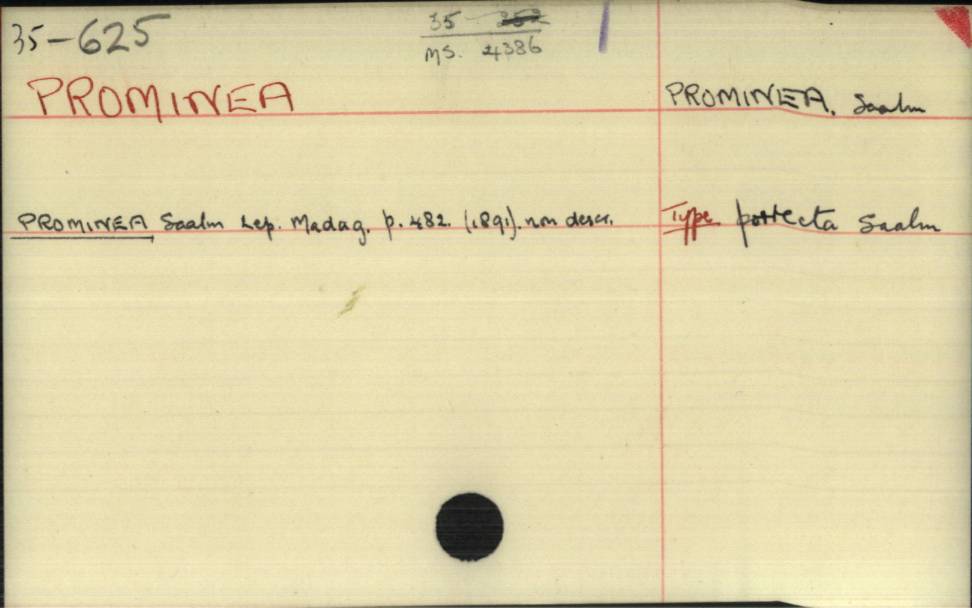 35-625
35
MS. 4386
PROMINEA
PROMINEA. Saalm
PROMINEA Saalm Lep. Madag. p. 482. (1891). non descr.
Type porrecta Saalm